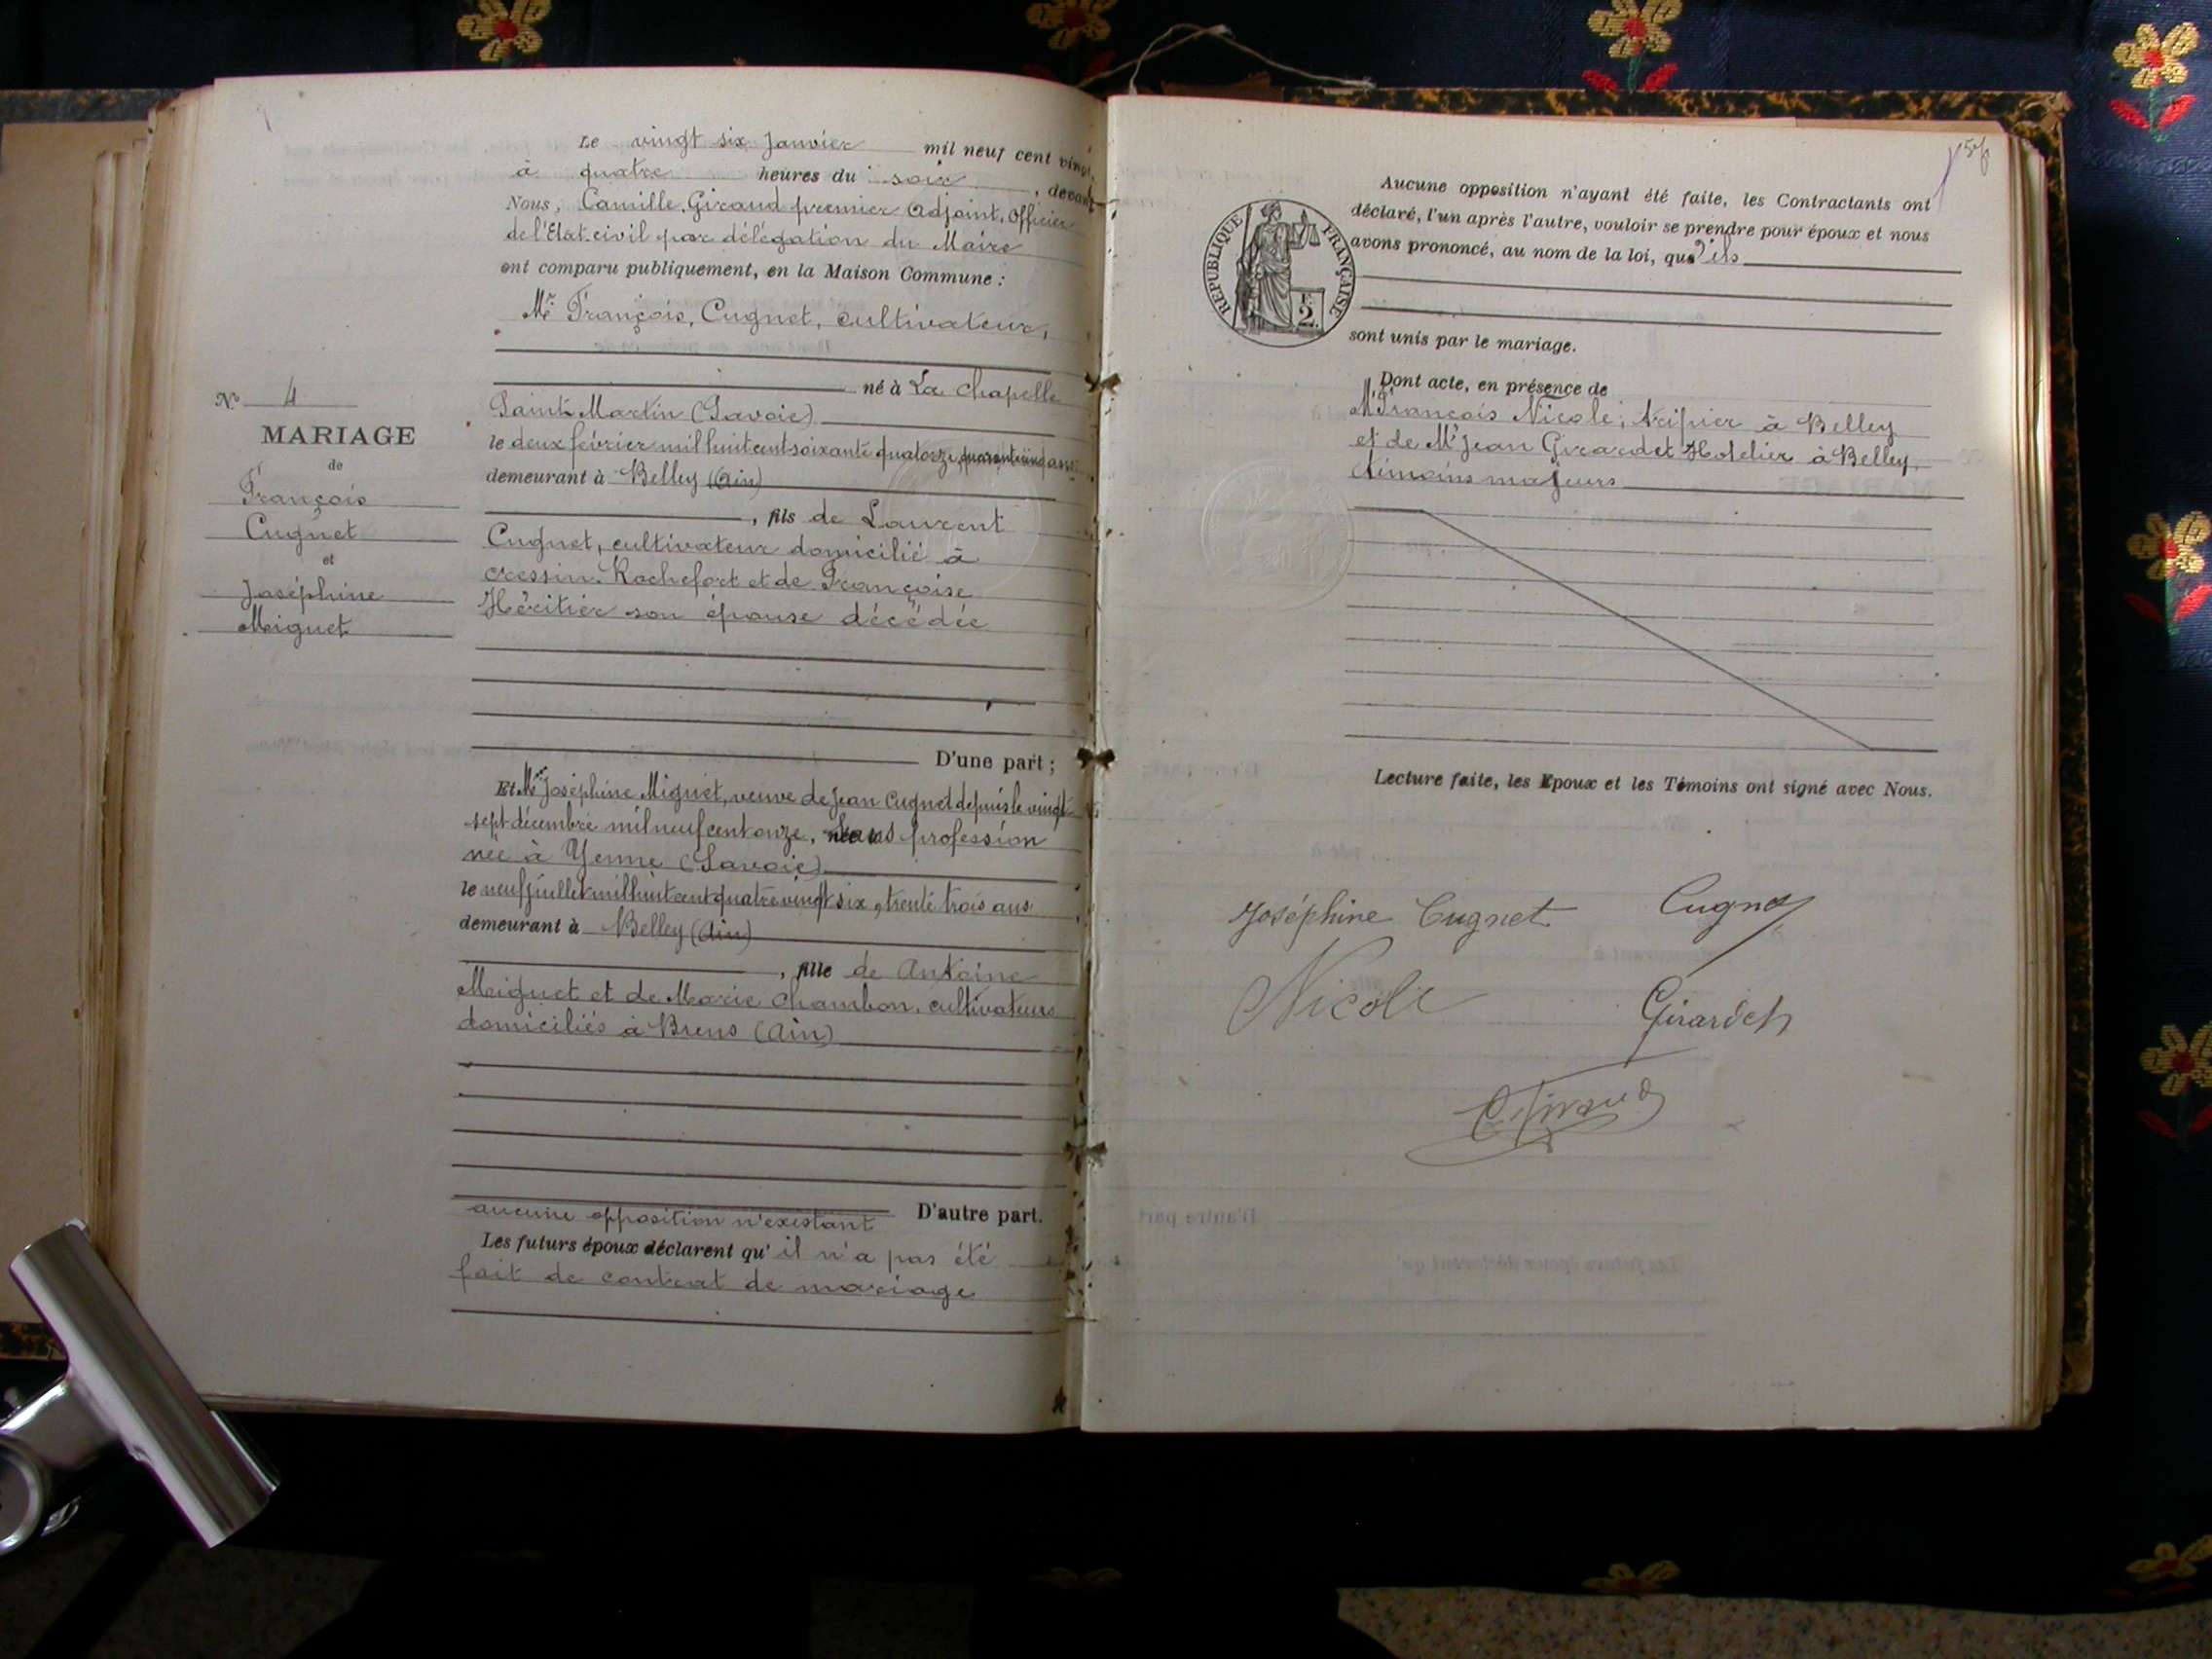 Le vingt six Janvier mil neuf cent vingt,
à quatre heures du soir, devant
Nous, Camille Giraud premier Adjoint, Officier
de l'Etat civil par délégation du Maire
ont comparu publiquement, en la Maison Commune :
Mr François, Cugnet, cultivateur,
né à La Chapelle
Saint Martin (Savoie)
le deux février mil huit cent soixante quatorze, quarante cinq ans
demeurant à Belley (Ain)
, fils de Laurent
Cugnet, cultivateur domicilié à
cressin-Rochefort et de Françoise
Héritier son épouse décédée
D'une part ;
Et Me Joséphine Miguet, veuve de Jean Cugnet depuis le vingt
sept décembre mil neuf cent onze, sans profession
née à Yenne (Savoie)
le neuf juillet mil huit cent quatre vingt six, trente trois ans
demeurant à Belley (Ain)
, fille de Antoine
Miguet et de Marie Chambon, cultivateurs
domiciliés à Brens (Ain)
D'autre part.
aucune opposition n'existant
Les futurs époux déclarent qu'il n'a pas été
fait de contrat de mariage
No 4
MARIAGE
de
François
Cugnet
et
Joséphine
Miguet
RÉPUBLIQUE FRANÇAISE
Aucune opposition n'ayant été faite, les Contractants ont
déclaré, l'un après l'autre, vouloir se prendre pour époux et nous
avons prononcé, au nom de la loi, qu'ils
sont unis par le mariage.
Dont acte, en présence de
Mr François Nicole, tripier à Belley
et de Mr Jean Girardet Hotelier à Belley,
témoins majeurs
Lecture faite, les Epoux et les Témoins ont signé avec Nous.
Joséphine Cugnet Cugnet
Nicole Girardet
C Giraud